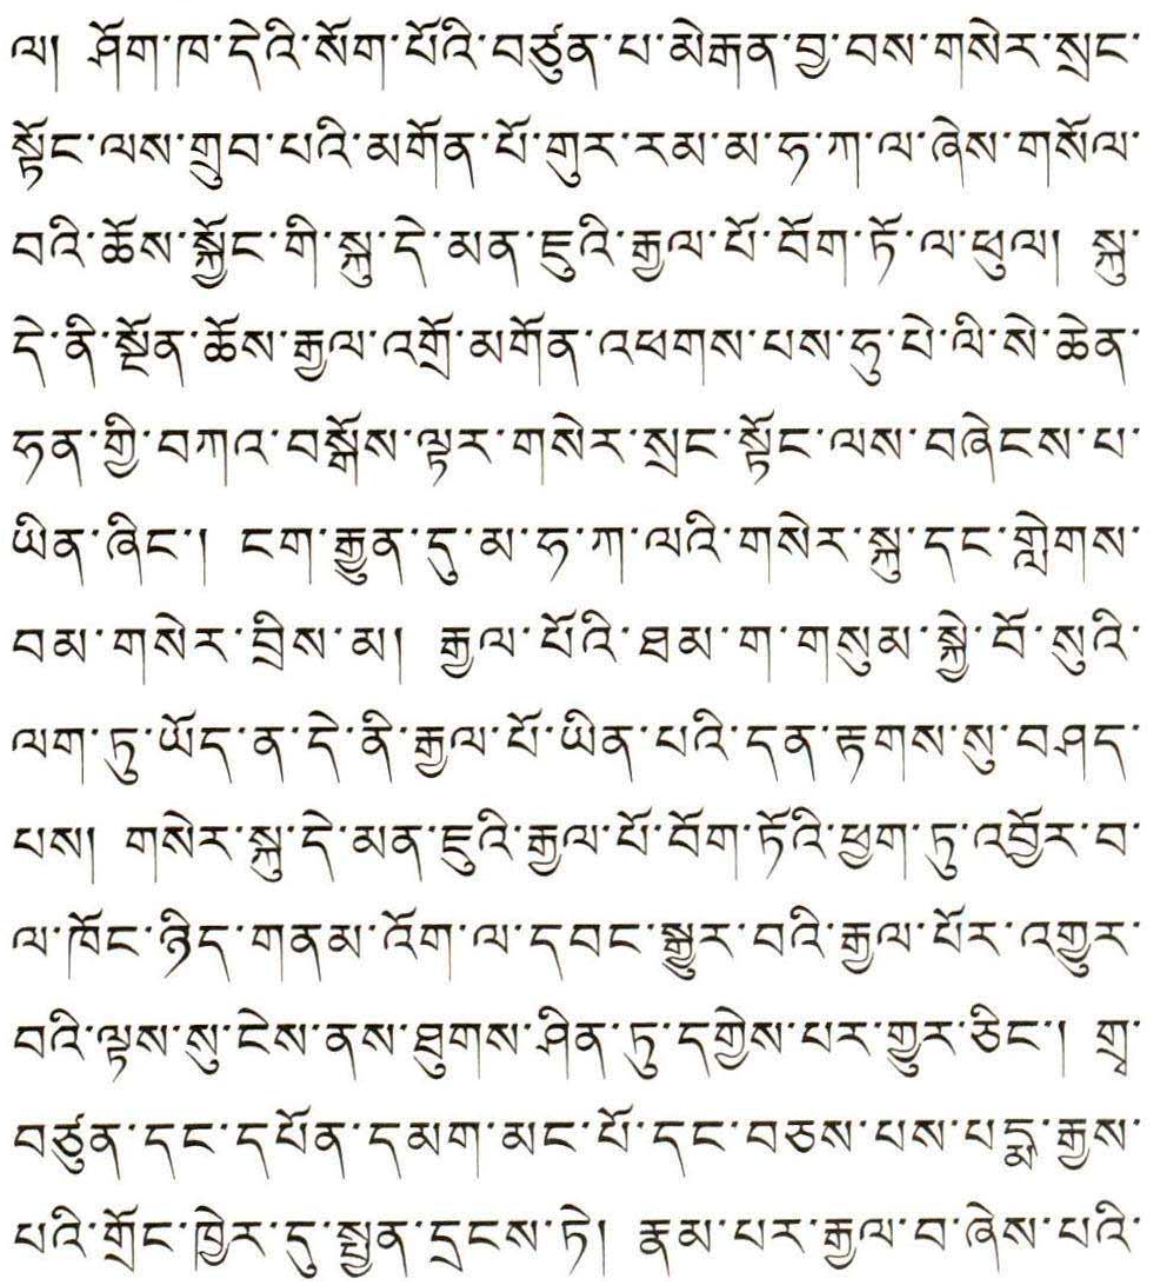 ལ། ཤོག་ཁ་དེའི་སོག་པོའི་བཙུན་པ་མེརྒན་བྱ་བས་གསེར་སྲང་
སྟོང་ལས་གྲུབ་པའི་མགོན་པོ་གུར་རམ་མ་ཧ་ཀ་ལ་ཞེས་གསོལ་
བའི་ཆོས་སྐྱོང་གི་སྐུ་དེ་མན་ཇུའི་རྒྱལ་པོ་བོག་ཏོ་ལ་ཕུལ། སྐུ་
དེ་ནི་སྔོན་ཆོས་རྒྱལ་འགྲོ་མགོན་འཕགས་པས་ཧུ་པེ་ལི་སེ་ཆེན་
ཧན་གྱི་བཀའ་བསྒོས་ལྟར་གསེར་སྲང་སྟོང་ལས་བཞེངས་པ་
ཡིན་ཞིང་། ངག་རྒྱུན་དུ་མ་ཧ་ཀ་ལའི་གསེར་སྐུ་དང་གླེགས་
བམ་གསེར་བྲིས་མ། རྒྱལ་པོའི་ཐམ་ག་གསུམ་སྐྱེ་བོ་སུའི་
ལག་ཏུ་ཡོད་ན་དེ་ནི་རྒྱལ་པོ་ཡིན་པའི་དན་རྟགས་སུ་བཤད་
པས། གསེར་སྐུ་དེ་མན་ཇུའི་རྒྱལ་པོ་བོག་ཏོའི་ཕྱག་ཏུ་འབྱོར་བ་
ལ་ཁོང་ཉིད་གནམ་འོག་ལ་དབང་སྒྱུར་བའི་རྒྱལ་པོར་འགྱུར་
བའི་ལྟས་སུ་ངེས་ནས་ཐུགས་ཤིན་ཏུ་དགྱེས་པར་གྱུར་ཅིང་། གྲྭ་
བཙུན་དང་དཔོན་དམག་མང་པོ་དང་བཅས་པས་པདྨ་རྒྱས་
པའི་གྲོང་ཁྱེར་དུ་སྤྱན་དྲངས་ཏེ། རྣམ་པར་རྒྱལ་བ་ཞེས་པའི་